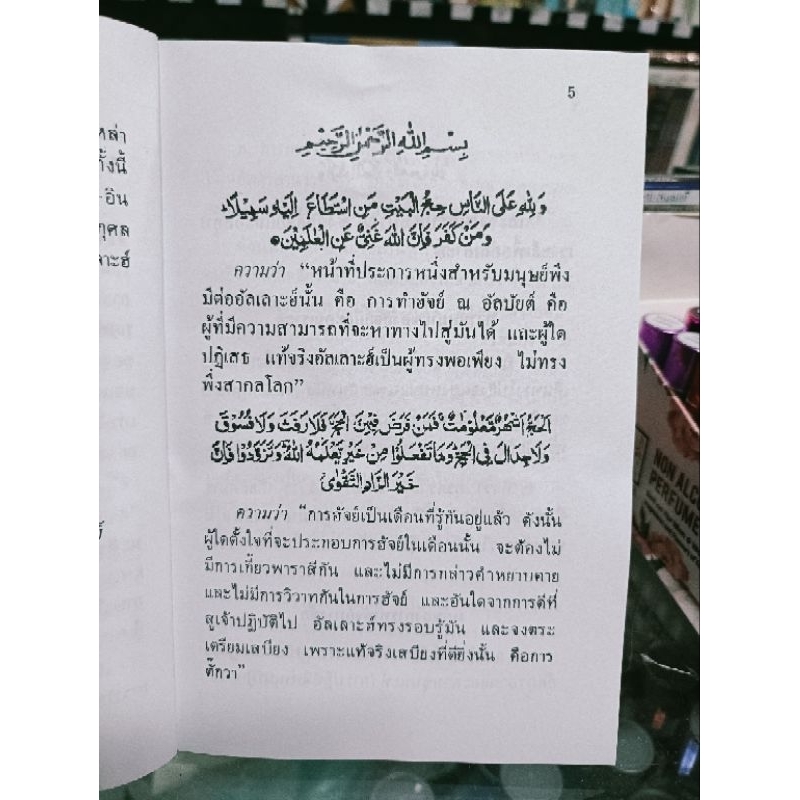 หล่า
ทั้งนี้
-อิน
กุศล
ลาะฮ์
5
بِسْمِ اللهِ الرَّحْمٰنِ الرَّحِيْمِ
وَلِلهِ عَلَى النَّاسِ حِجُّ الْبَيْتِ مَنِ اسْتَطَاعَ إِلَيْهِ سَبِيْلًا
وَمَنْ كَفَرَ فَإِنَّ اللهَ غَنِيٌّ عَنِ الْعٰلَمِيْنَ
ความว่า "หน้าที่ประการหนึ่งสำหรับมนุษย์พึง
มีต่ออัลเลาะฮ์นั้น คือ การทำฮัจย์ ณ อัลบัยต์ คือ
ผู้ที่มีความสามารถที่จะหาทางไปสู่มันได้ และผู้ใด
ปฏิเสธ แท้จริงอัลเลาะฮ์เป็นผู้ทรงพอเพียง ไม่ทรง
พึ่งสากลโลก"
اَلْحَجُّ اَشْهُرٌ مَّعْلُوْمٰتٌ فَمَنْ فَرَضَ فِيْهِنَّ الْحَجَّ فَلَا رَفَثَ وَلَا فُسُوْقَ
وَلَا جِدَالَ فِي الْحَجِّ وَمَا تَفْعَلُوْا مِنْ خَيْرٍ يَّعْلَمْهُ اللهُ وَتَزَوَّدُوْا فَإِنَّ
خَيْرَ الزَّادِ التَّقْوٰى
ความว่า "การฮัจย์เป็นเดือนที่รู้กันอยู่แล้ว ดังนั้น
ผู้ใดตั้งใจที่จะประกอบการฮัจย์ในเดือนนั้น จะต้องไม่
มีการเกี้ยวพาราสีกัน และไม่มีการกล่าวคำหยาบคาย
และไม่มีการวิวาทกันในการฮัจย์ และอันใดจากการดีที่
สูเจ้าปฏิบัติไป อัลเลาะห์ทรงรอบรู้มัน และจงตระ
เตรียมเสบียง เพราะแท้จริงเสบียงที่ดียิ่งนั้น คือการ
ตั๊กวา"
NON ALC
PERFUME